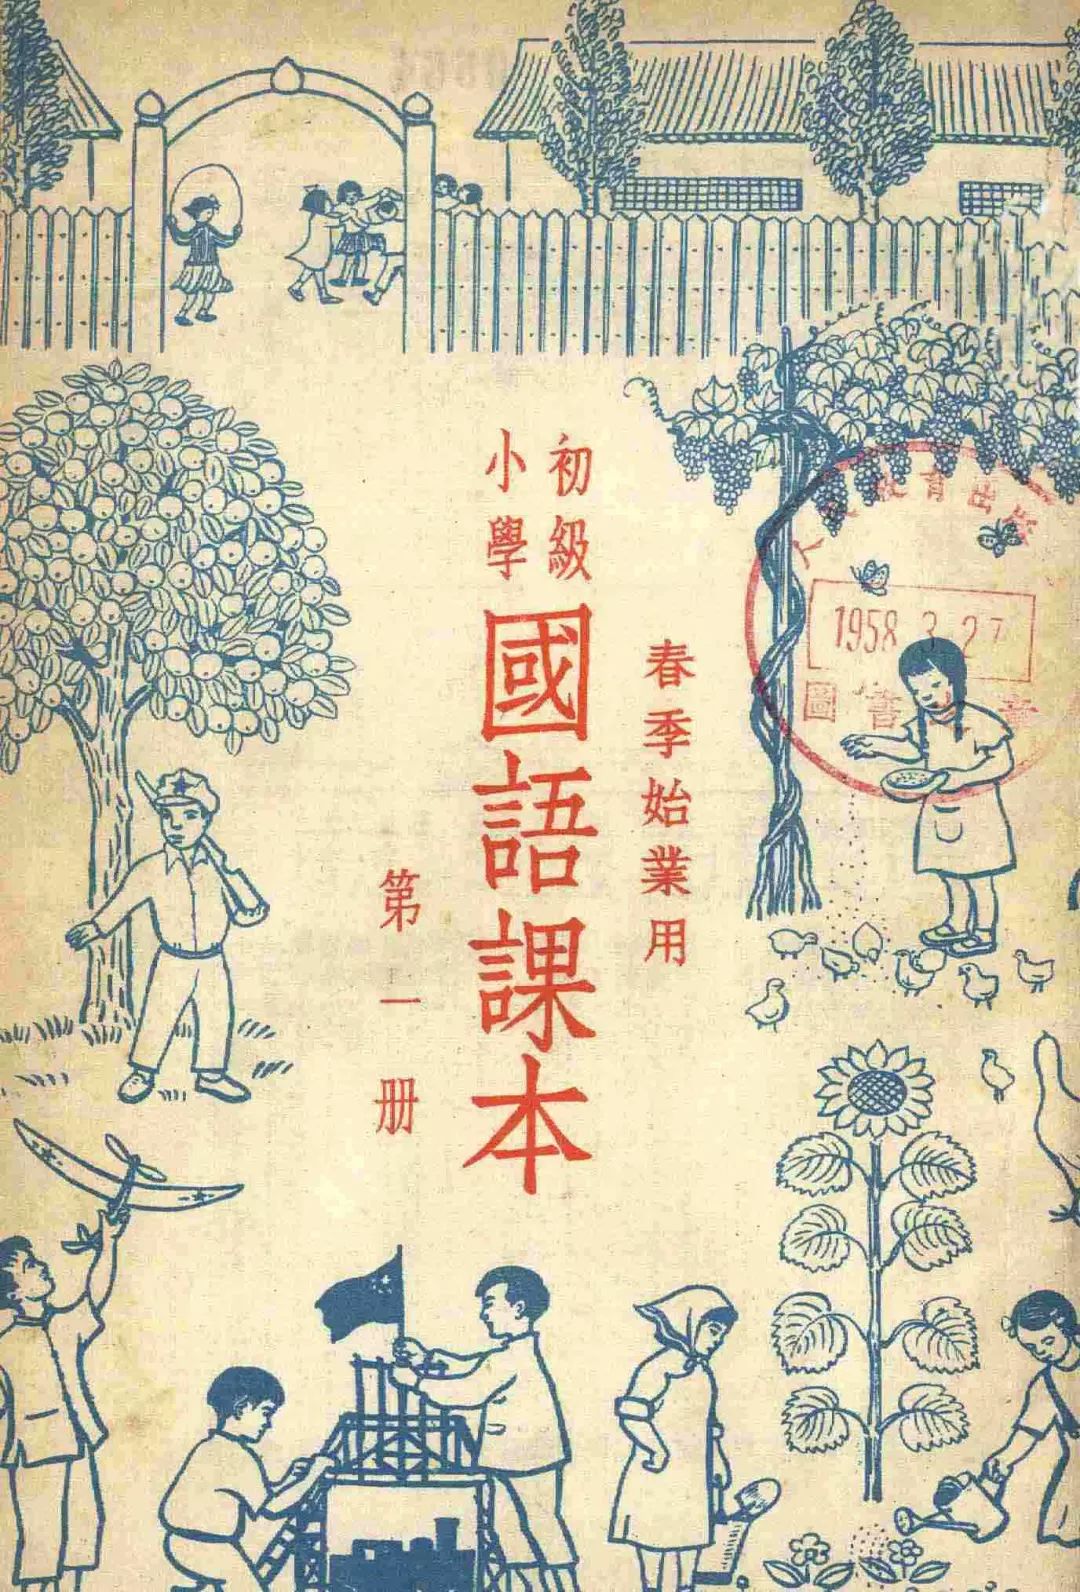 春季始業用
初級
小學
國語課本
第一册
教育出
1958.3.27
圖書章